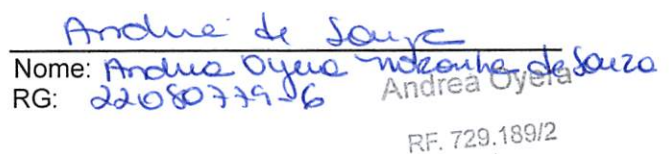 Andrea de Souza
Nome: Andrea Oyera Noronha de Souza
RG: 22080779-6
Andrea Oyera
RF. 729.189/2